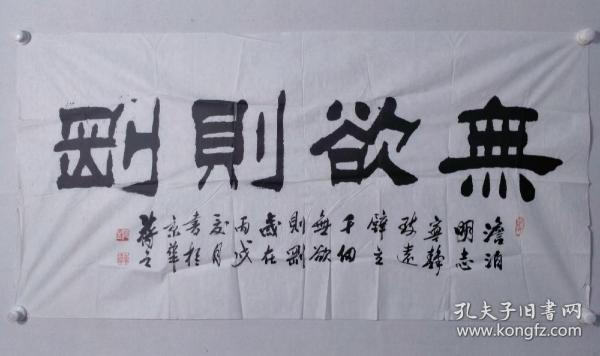 無欲則剛
澹泊
明志
寧靜
致遠
壁立
千仞
無欲
則剛
歲在
丙戌
夏月
書於
京華
孔夫子旧书网
www.kongfz.com